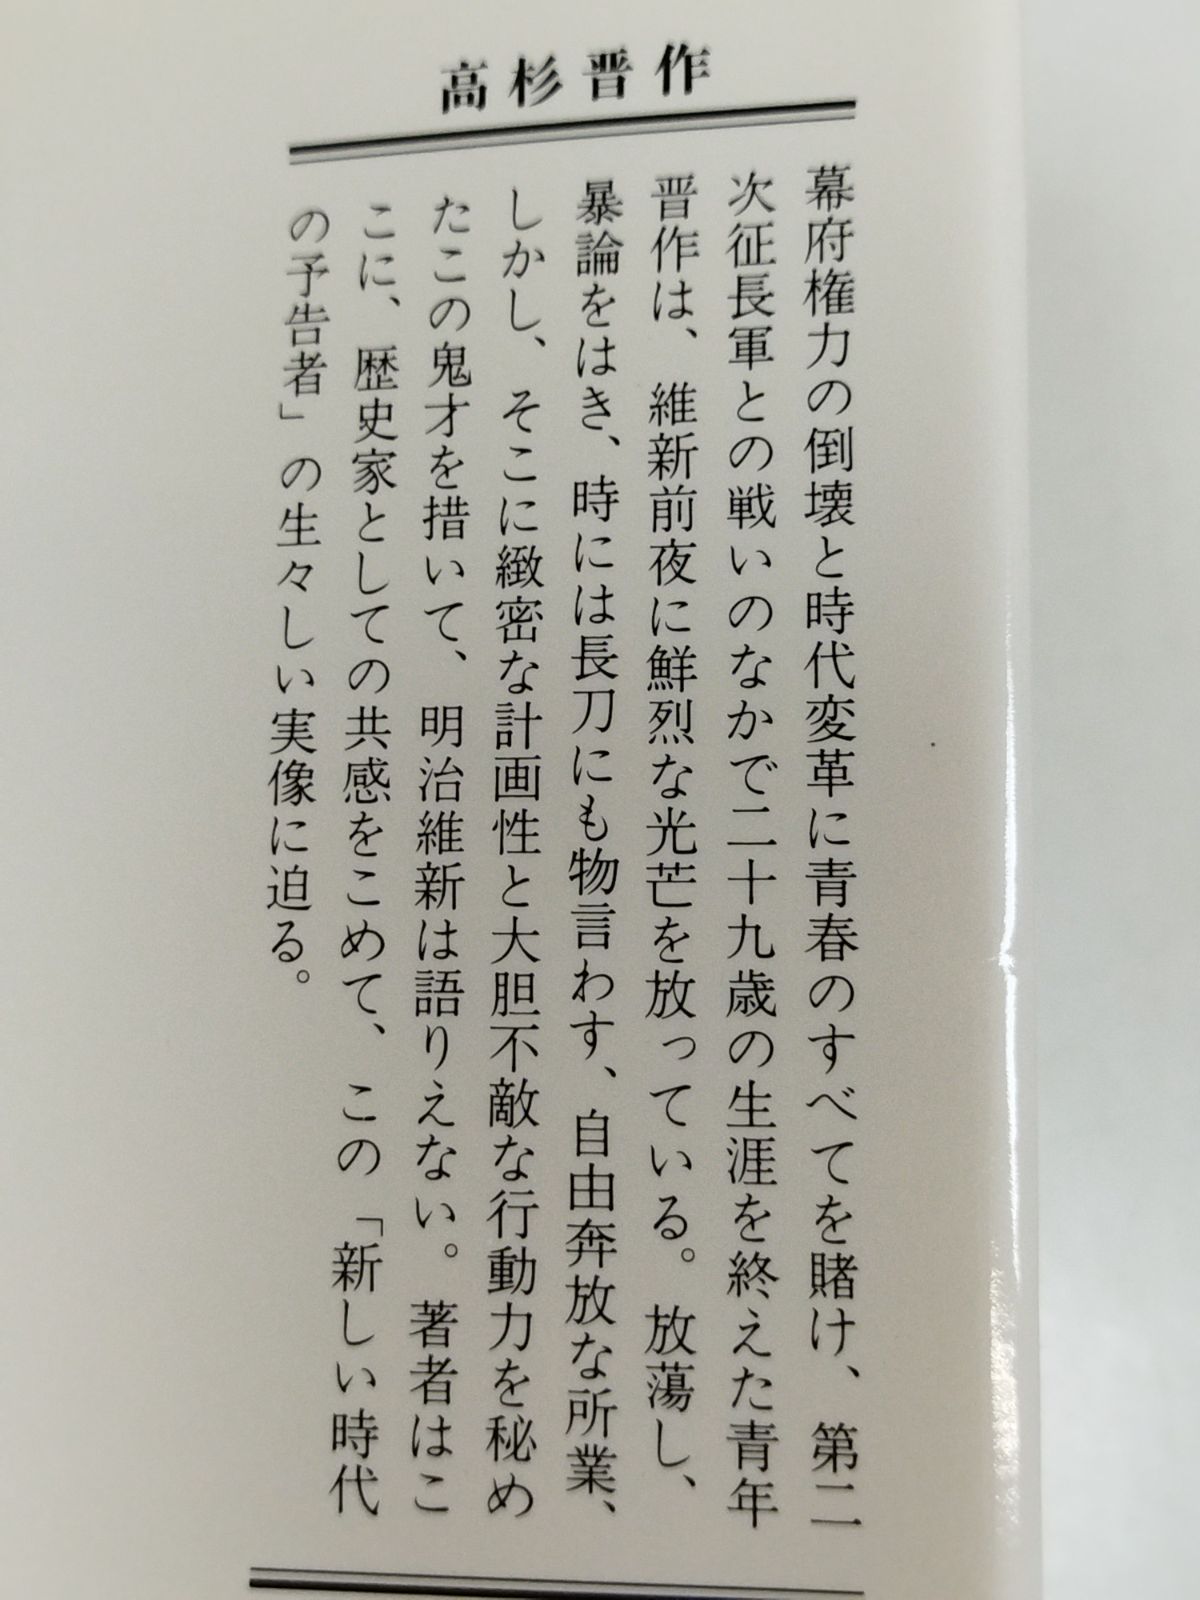 高杉晋作
幕府権力の倒壊と時代変革に青春のすべてを賭け、第二
次征長軍との戦いのなかで二十九歳の生涯を終えた青年
晋作は、維新前夜に鮮烈な光芒を放っている。放蕩し、
暴論をはき、時には長刀にも物言わす、自由奔放な所業、
しかし、そこに緻密な計画性と大胆不敵な行動力を秘め
たこの鬼才を措いて、明治維新は語りえない。著者はこ
こに、歴史家としての共感をこめて、この「新しい時代
の予告者」の生々しい実像に迫る。